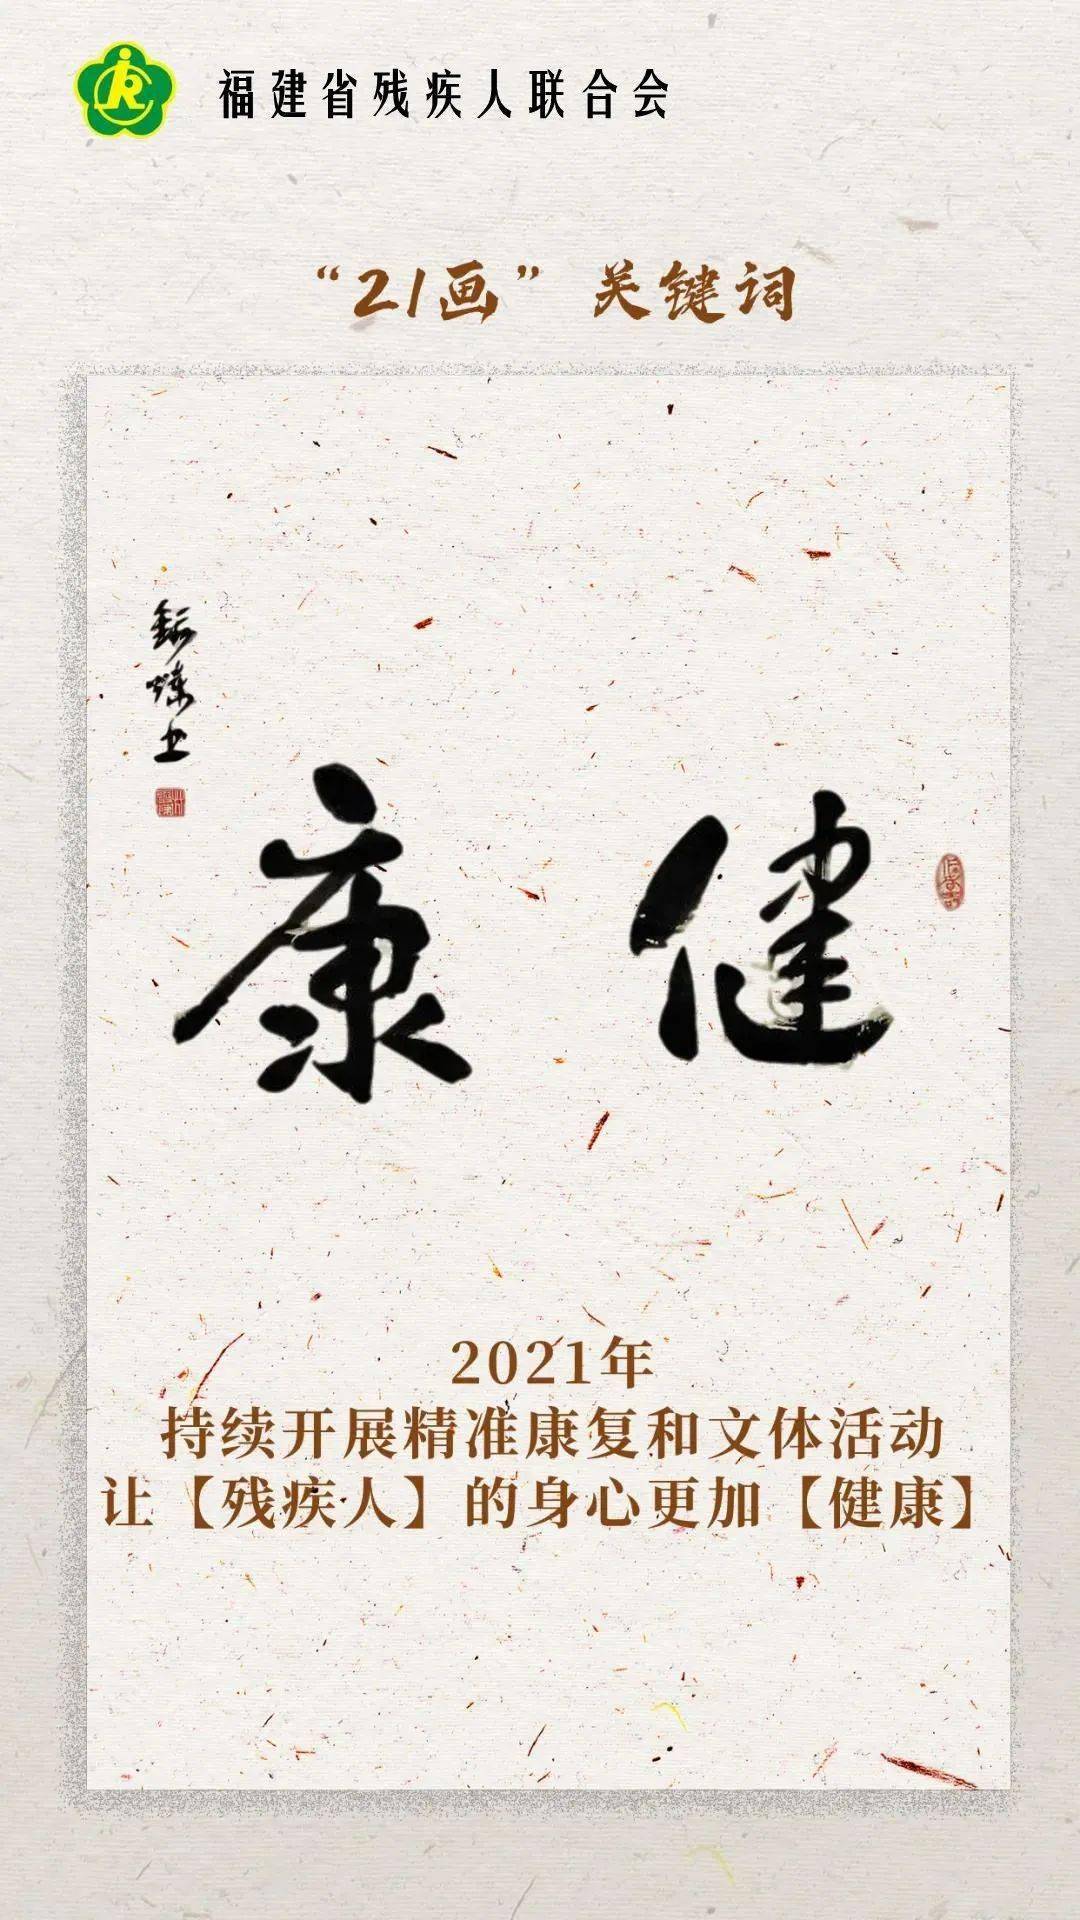 福建省残疾人联合会
“21画”关键词
健康
2021年
持续开展精准康复和文体活动
让【残疾人】的身心更加【健康】